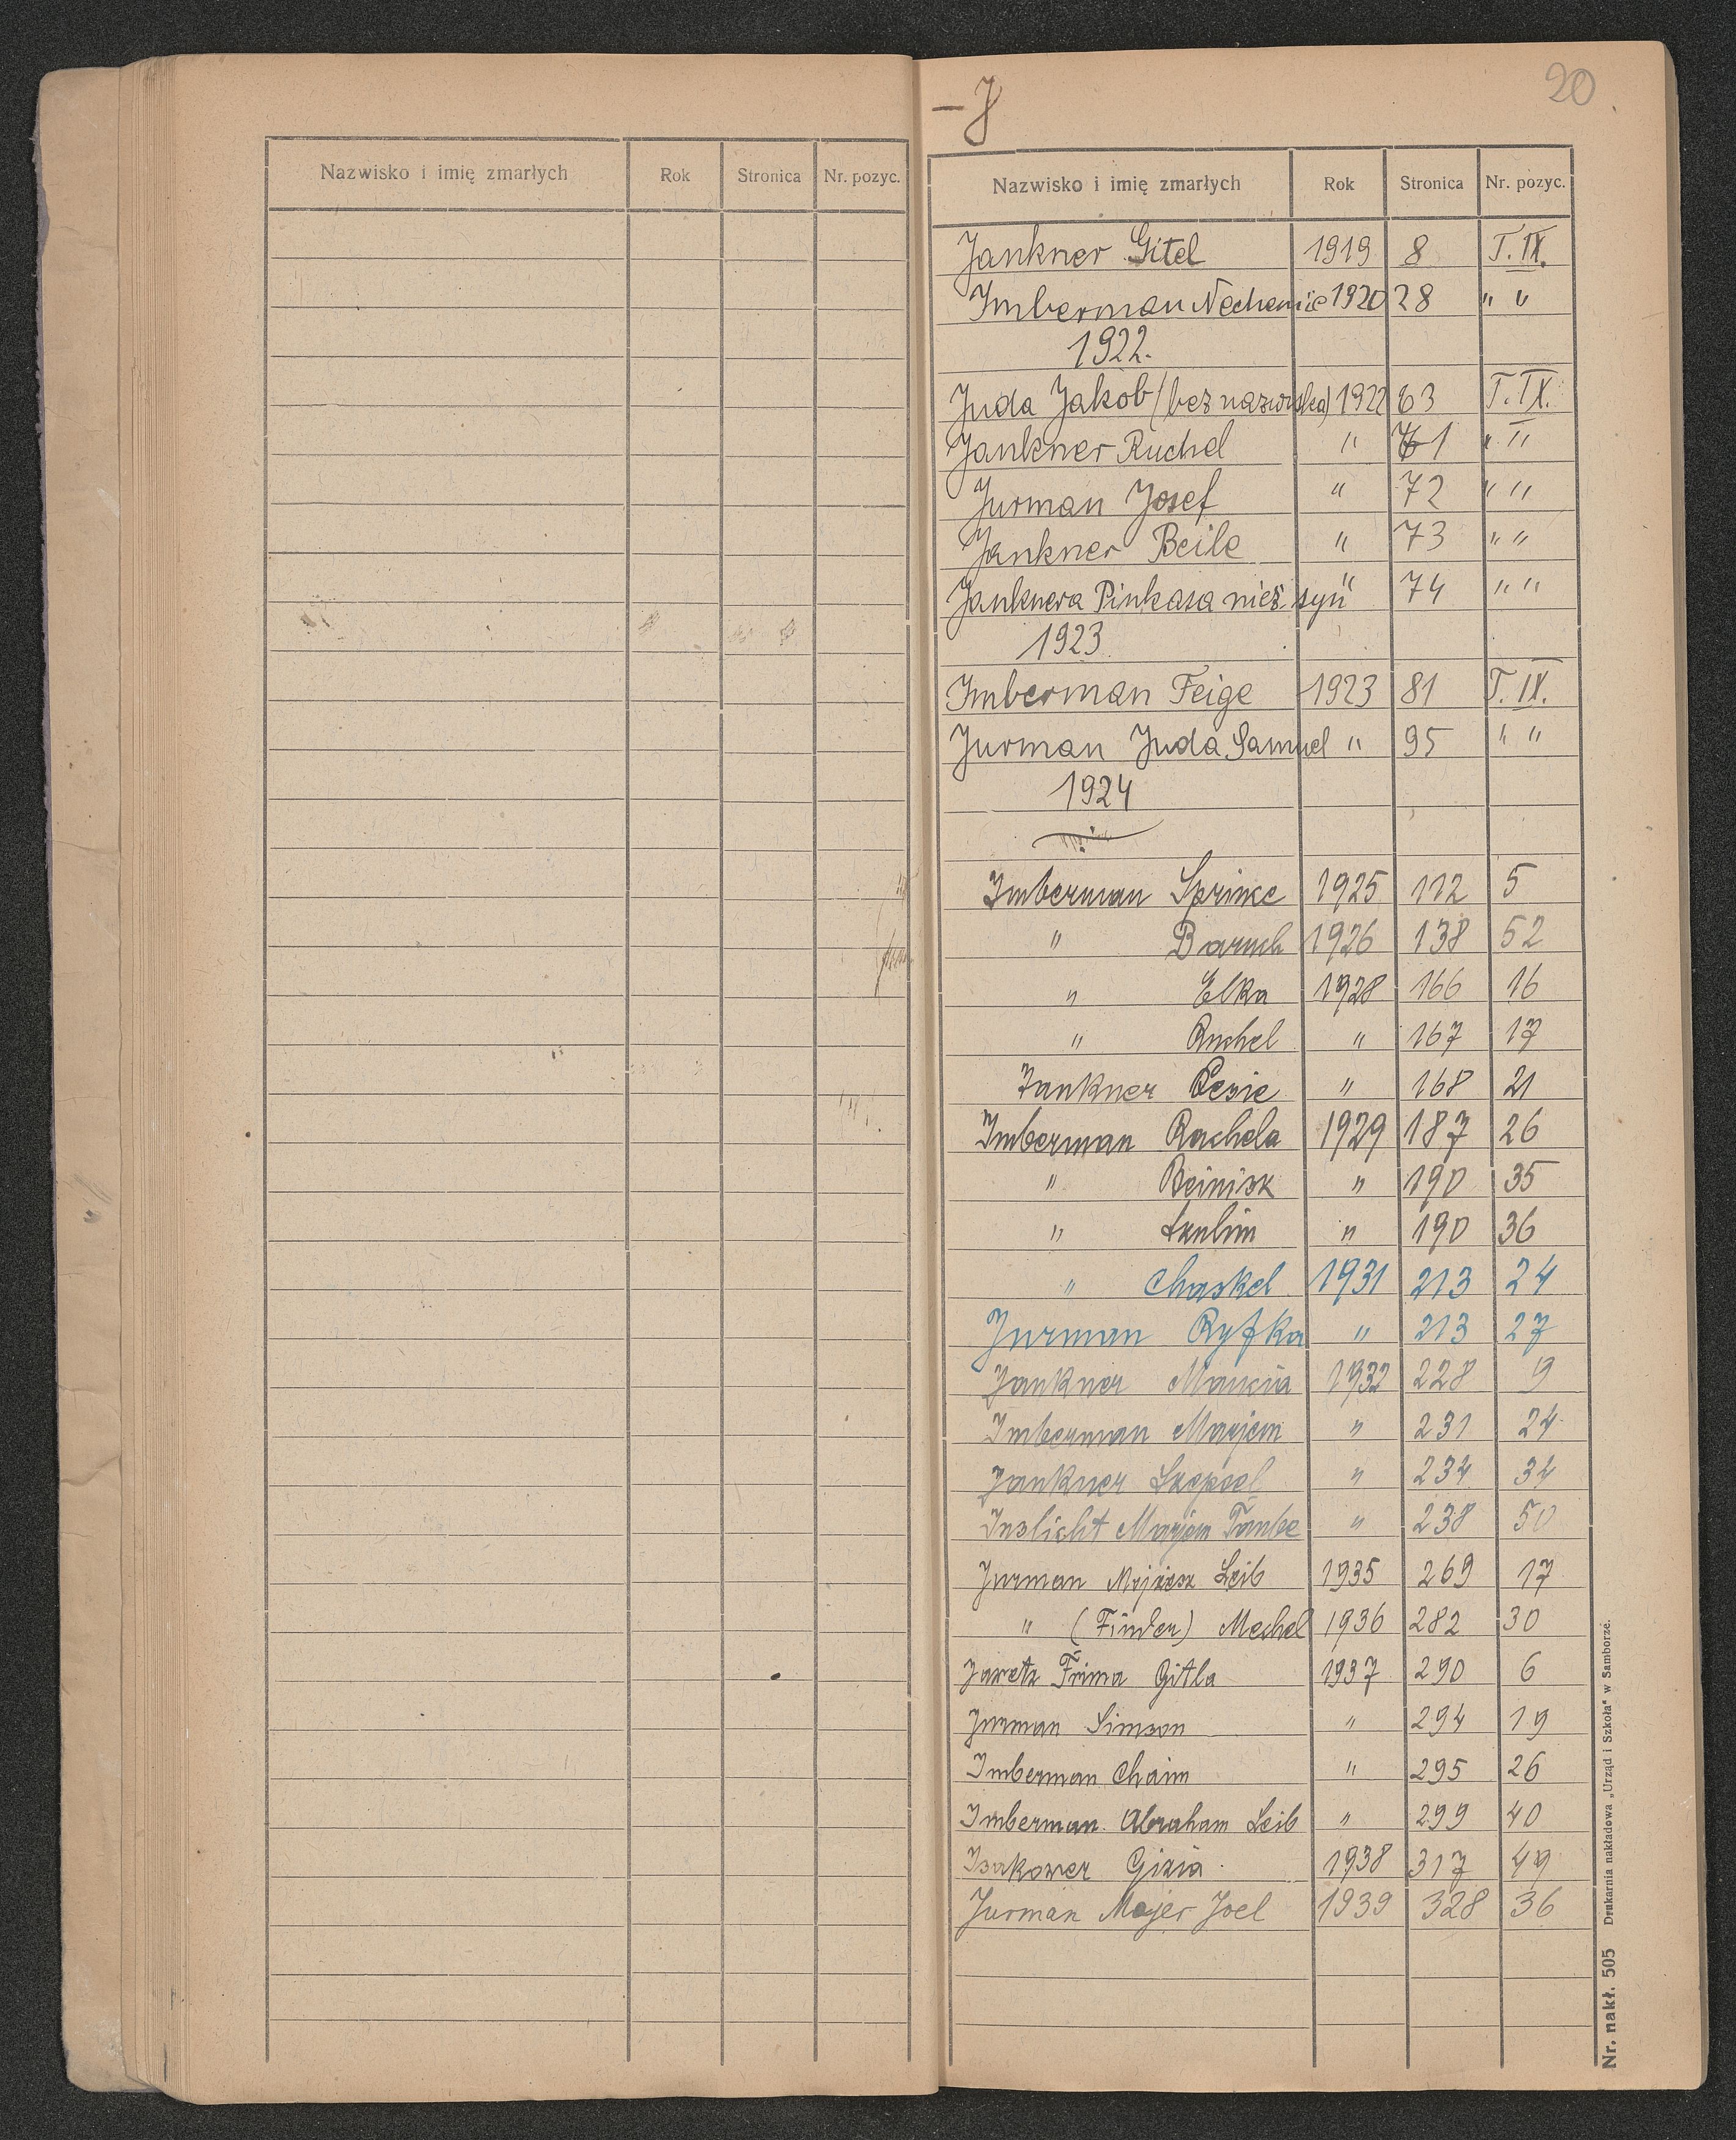 20
– J
Nazwisko i imię zmarłych Rok Stronica Nr. pozyc.
Nazwisko i imię zmarłych Rok Stronica Nr. pozyc.
Jankner Gitel 1919 8 T. IX.
Imberman Nechemie 1920 28 " "
1922.
Juda Jakob (bez nazwiska) 1922 63 T. IX.
Jankner Ruchel " 71 " "
Jurman Josef " 72 " "
Jankner Beile " 73 " "
Janknera Pinkasa nieś. syn " 74 " "
1923
Imberman Feige 1923 81 T. IX.
Jurman Juda Samuel " 95 " "
1924
Imberman Sprince 1925 112 5
" Baruch 1926 138 52
" Elka 1928 166 16
" Ruchel " 167 17
Jankner Pesie " 168 21
Imberman Rachela 1929 187 26
" Beinisz " 190 35
" Szulim " 190 36
" Chaskel 1931 213 24
Jurman Ryfka " 213 27
Jankner 1932 228 9
Imberman Marjem " 231 24
Jankner " 234 34
Inslicht Marjem Taube " 238 50
Jurman Mojżesz Leib 1935 269 17
" (Finder) Mechel 1936 282 30
Frima Gitla 1937 290 6
Jurman Simson " 294 19
Imberman Chaim " 295 26
Imberman Abraham Leib " 299 40
Isakower Gizia 1938 317 49
Jurman Majer Joel 1939 328 36
Nr. nakł. 505 Drukarnia nakładowa „Urząd i Szkoła" w Samborze.